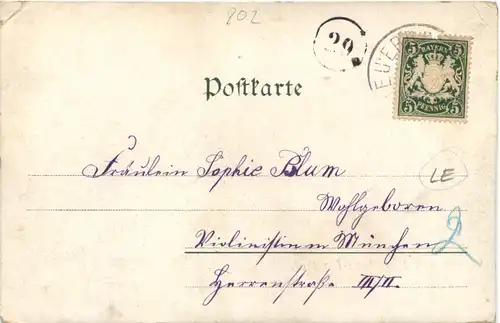 802
29
5 BAYERN 5
5 PFENNIG 5
Postkarte
Fräulein Sophie Blum
LE
Wohlgeboren
Violinistin in München
2
Herrenstraße